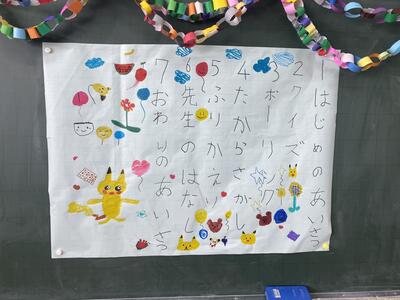 1 はじめのあいさつ
2 クイズ
3 ボーリング
4 たからさがし
5 ふりかえり
6 先生のはなし
7 おわりのあいさつ